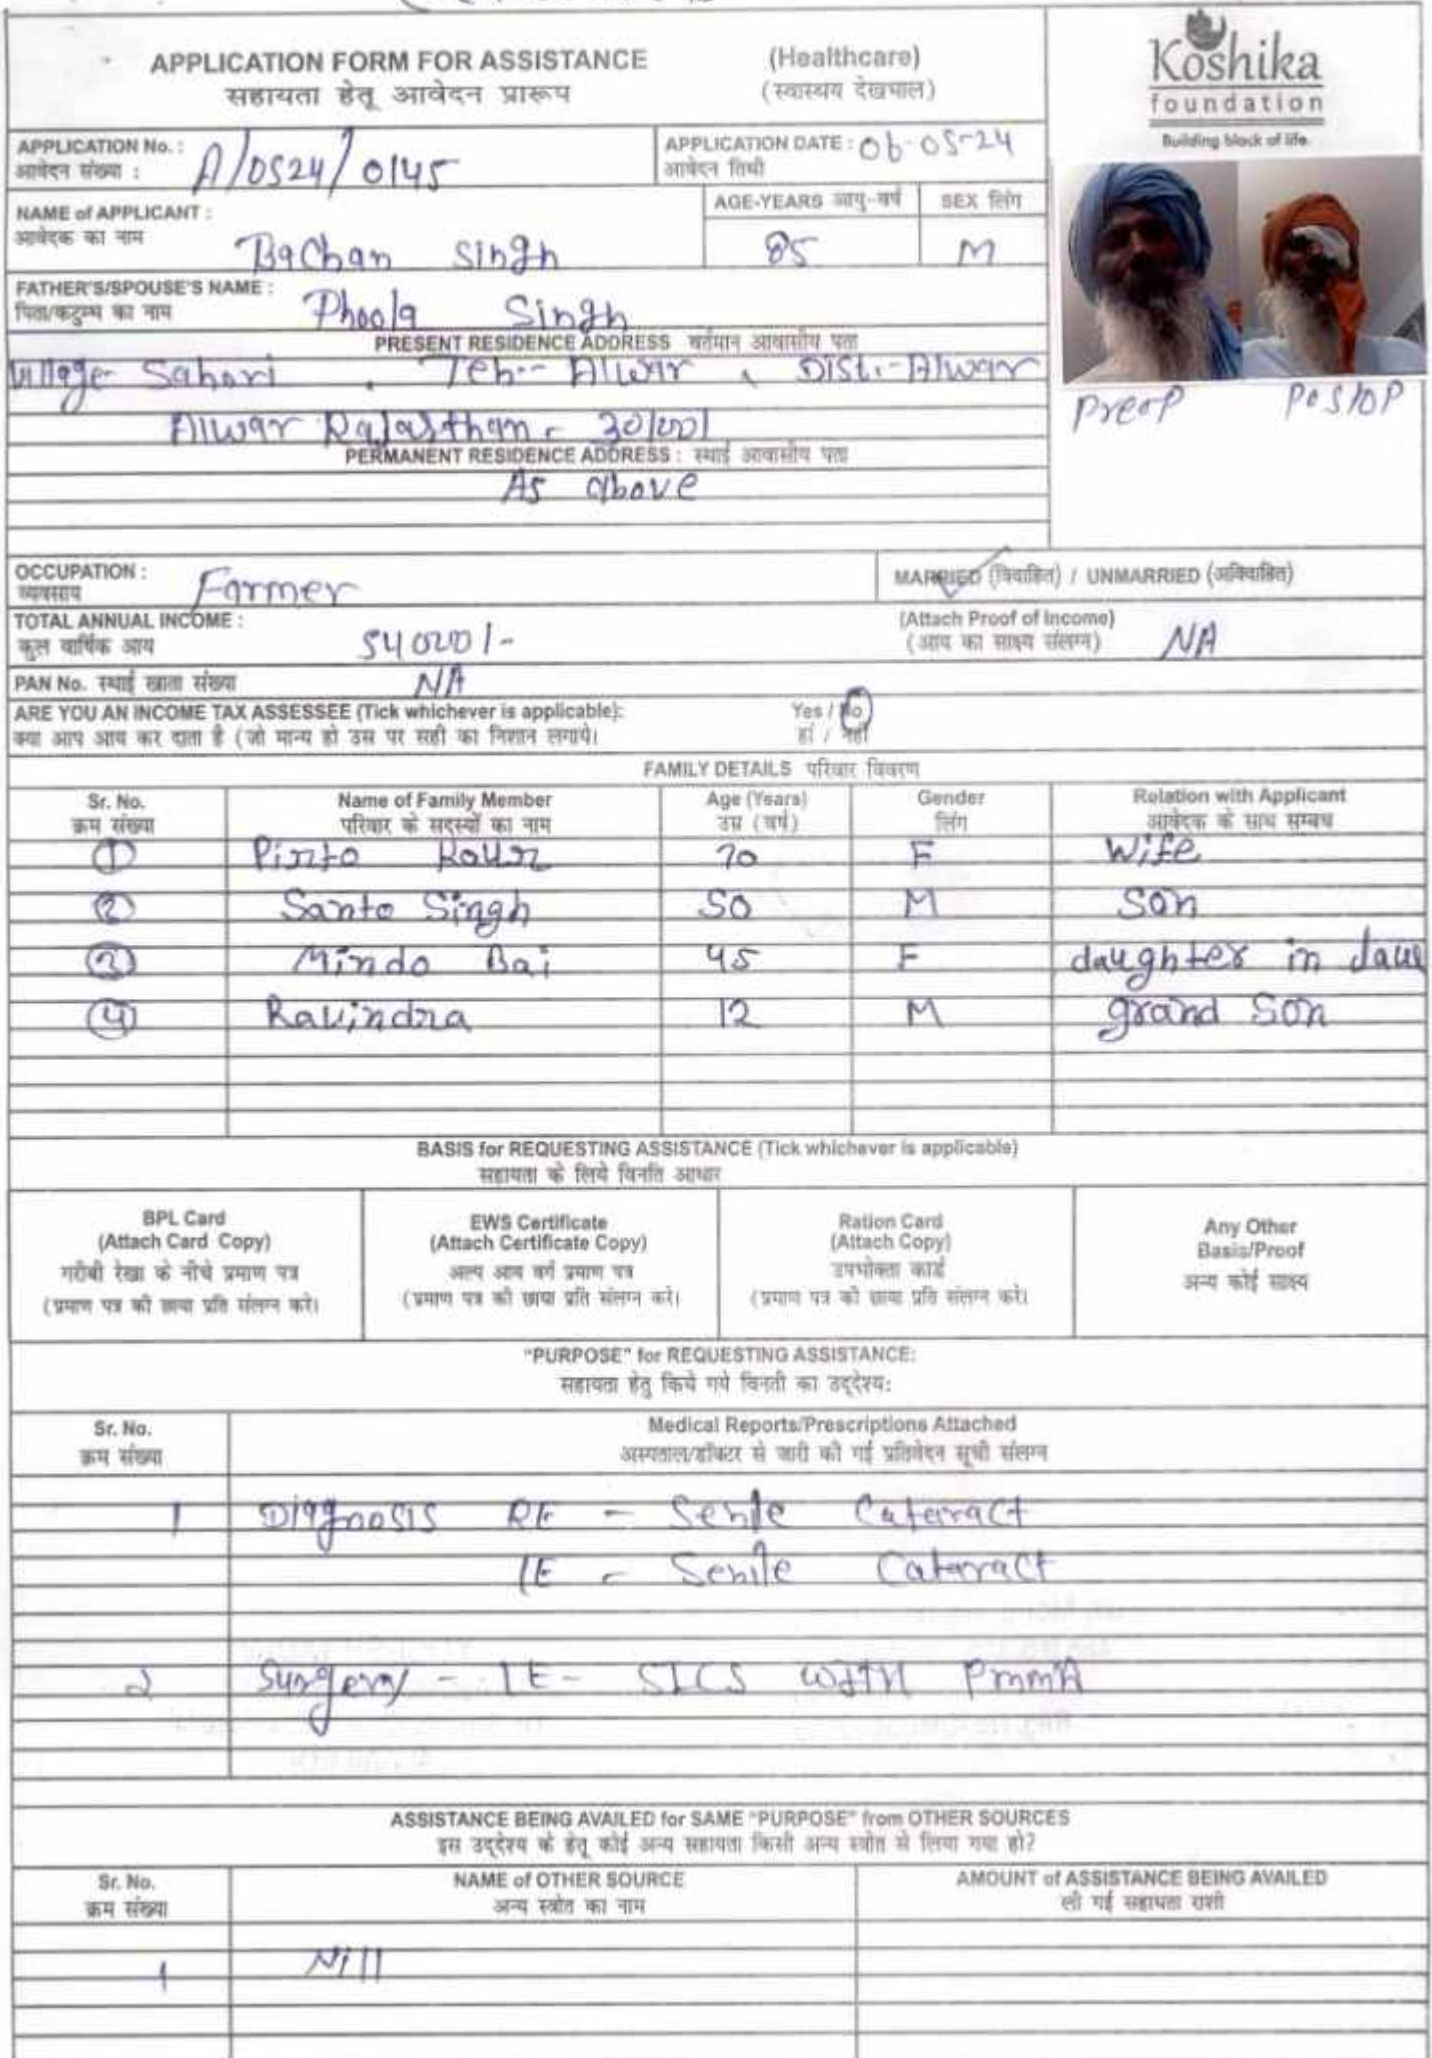 APPLICATION FORM FOR ASSISTANCE (Healthcare)
सहायता हेतू आवेदन प्रारूप (स्वास्थय देखभाल)
Koshika
foundation
Building block of life.
APPLICATION No. : A/0524/0145
आवेदन संख्या :
APPLICATION DATE : 06-05-24
आवेदन तिथी
NAME of APPLICANT : Bachan Singh
आवेदक का नाम
AGE-YEARS आयु-वर्ष 85
SEX लिंग M
FATHER'S/SPOUSE'S NAME : Phoola Singh
पिता/कटुम्ब का नाम
PreoP PostOP
PRESENT RESIDENCE ADDRESS वर्तमान आवासीय पता
Village Sahori , Teh.- Alwar , Dist.-Alwar
Alwar Rajasthan - 301001
PERMANENT RESIDENCE ADDRESS : स्थाई आवासीय पता
As above
OCCUPATION : Farmer
व्यवसाय
MARRIED (विवाहित) / UNMARRIED (अविवाहित)
TOTAL ANNUAL INCOME : 54000/-
कुल वार्षिक आय
(Attach Proof of Income) NA
(आय का साक्ष्य संलग्न)
PAN No. स्थाई खाता संख्या NA
ARE YOU AN INCOME TAX ASSESSEE (Tick whichever is applicable): Yes / No
क्या आप आय कर दाता है (जो मान्य हो उस पर सही का निशान लगाये। हां / नहीं
FAMILY DETAILS परिवार विवरण
Sr. No. Name of Family Member Age (Years) Gender Relation with Applicant
क्रम संख्या परिवार के सदस्यों का नाम उम्र (वर्ष) लिंग आवेदक के साथ सम्बध
1 Pinto Kaur 70 F Wife
2 Santo Singh 50 M Son
3 Mindo Bai 45 F daughter in law
4 Ravindra 12 M grand Son
BASIS for REQUESTING ASSISTANCE (Tick whichever is applicable)
सहायता के लिये विनति आधार
BPL Card
(Attach Card Copy)
गरीबी रेखा के नीचे प्रमाण पत्र
(प्रमाण पत्र की छाया प्रति संलग्न करे।
EWS Certificate
(Attach Certificate Copy)
अल्प आय वर्ग प्रमाण पत्र
(प्रमाण पत्र की छाया प्रति संलग्न करे।
Ration Card
(Attach Copy)
उपभोक्ता कार्ड
(प्रमाण पत्र की छाया प्रति संलग्न करे।
Any Other
Basis/Proof
अन्य कोई साक्ष्य
"PURPOSE" for REQUESTING ASSISTANCE:
सहायता हेतु किये गये विनती का उद्देश्य:
Sr. No. Medical Reports/Prescriptions Attached
क्रम संख्या अस्पताल/डॉक्टर से जारी की गई प्रतिवेदन सूची संलग्न
1 Diagnosis RE - Senile Cataract
LE - Senile Cataract
2 Surgery - LE - SICS WITH PmmA
ASSISTANCE BEING AVAILED for SAME "PURPOSE" from OTHER SOURCES
इस उद्देश्य के हेतू कोई अन्य सहायता किसी अन्य स्त्रोत से लिया गया हो?
Sr. No. NAME of OTHER SOURCE AMOUNT of ASSISTANCE BEING AVAILED
क्रम संख्या अन्य स्त्रोत का नाम ली गई सहायता राशी
1 Nill